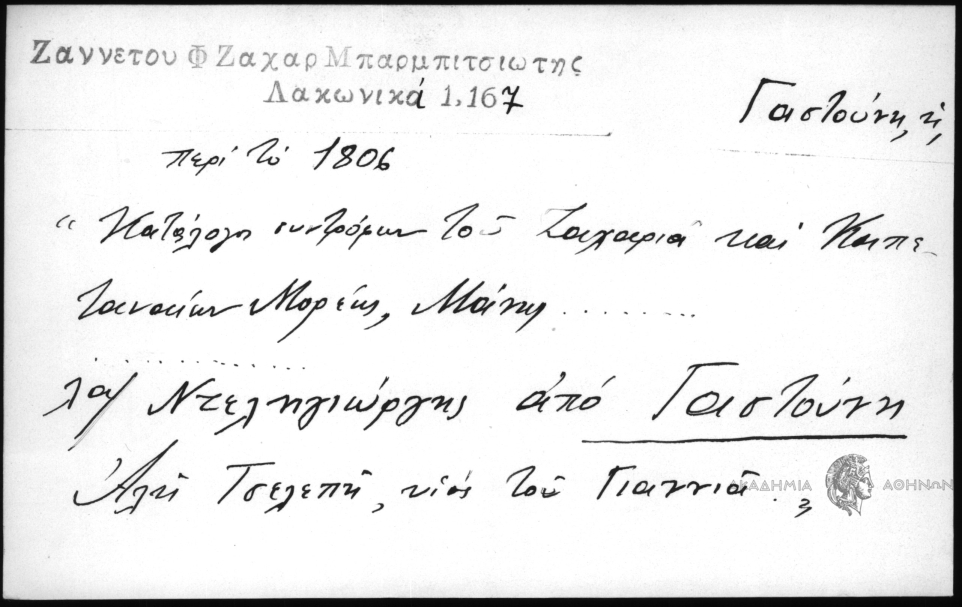 Ζαννετου Φ Ζαχαρ Μπαρμπιτσιωτης
Λακωνικά 1,167
Γαστούνη, ἡ,
περὶ τὸ 1806
“Κατάλογοι συντρόφων τοῦ Ζαχαριᾶ καὶ Καπε-
ταναίων Μορέως, Μάνης ........
............
λα/ Ντεληγιώργης ἀπό Γαστούνη
Ἀλῆ Τσελεπῆ, υἱός τοῦ Γιαννιᾶ . „
ΑΚΑΔΗΜΙΑ ΑΘΗΝΩΝ